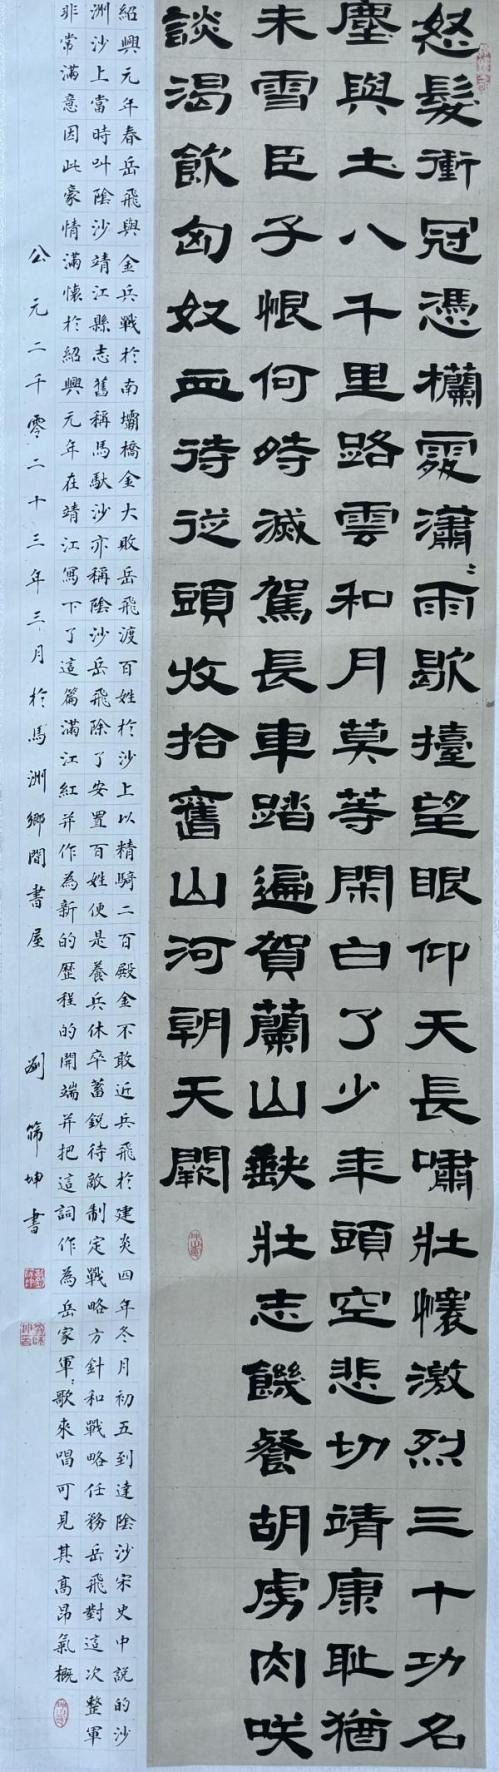 怒髮衝冠憑欄處瀟〻雨歇擡望眼仰天長嘯壯懷激烈三十功名
塵與土八千里路雲和月莫等閑白了少年頭空悲切靖康耻猶
未雪臣子恨何時滅駕長車踏遍賀蘭山缺壯志饑餐胡虜肉咲
談渴飲匈奴血待從頭收拾舊山河朝天闕
紹興元年春岳飛與金兵戰於南壩橋金大敗岳飛渡百姓於沙上以精騎二百殿金不敢近兵飛於建炎四年冬月初五到達陰沙宋史中說的沙
洲沙上當時叫陰沙靖江縣志舊稱馬馱沙亦稱陰沙岳飛除了安置百姓便是養兵休卒蓄銳待敵制定戰略方針和戰略任務岳飛對這次整軍
非常滿意因此豪情滿懷於紹興元年在靖江寫下了這篇滿江紅并作為新的歷程的開端并把這詞作為岳家軍〻歌來唱可見其高昂氣概
公元二千零二十三年三月於馬洲鄉間書屋 劉篩坤書